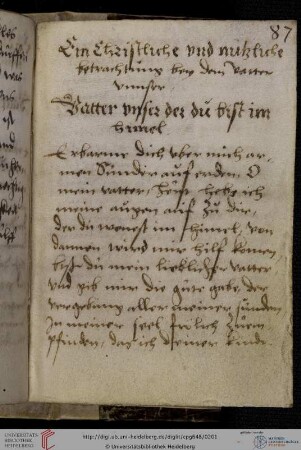 87
Ein Christliche vnd nutzliche
betrachtung bey dem Vatter
vnnser
Vatter vnser der du bist im
himel
Erbarme dich vber mich ar-
men Sünder auf erden, O
mein vatter, hebe ich
meine augen auf zu dir,
der du wonest im himel, von
dannen wird mir hilf komen,
bist du mein lieblicher vatter
vnd gib mir die güte gabe der
vergebung aller meiner sünden,
In meiner seel frölich zuem
pfinden, daz ich deiner kinde
UNIVERSITÄTS-
BIBLIOTHEK
HEIDELBERG
http://digi.ub.uni-heidelberg.de/diglit/cpg648/0201
© Universitätsbibliothek Heidelberg